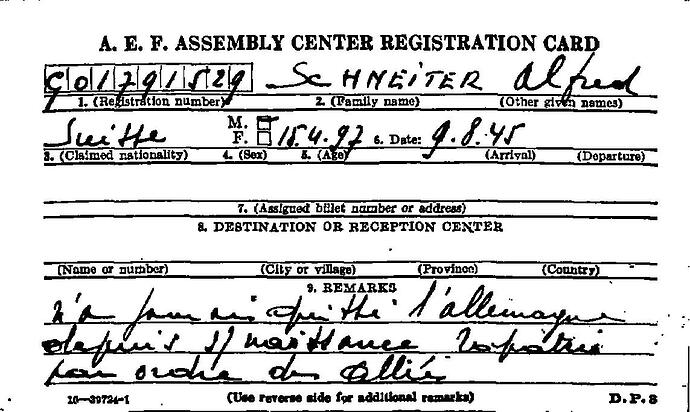 A. E. F. ASSEMBLY CENTER REGISTRATION CARD
G01791529 SCHNEITER Alfred
1. (Registration number) 2. (Family name) (Other given names)
Suisse M. F. 15.4.97 6. Date: 9.8.45
3. (Claimed nationality) 4. (Sex) 5. (Age) (Arrival) (Departure)
7. (Assigned billet number or address)
8. DESTINATION OR RECEPTION CENTER
(Name or number) (City or village) (Province) (Country)
9. REMARKS
n'a jamais quitté l'allemagne
depuis s/ naissance rapatrié
par ordre des Alliés
16—39724-1 (Use reverse side for additional remarks) D.P.S